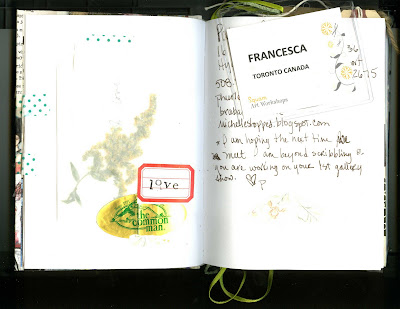 love
the
common
man.
FRANCESCA
TORONTO CANADA
Art Workshops
36
of
26-15
P
16
Hy
508
michellestopped.blogspot.com
I am hoping the next time
meet I am beyond scribbling &
you are working on your 1st gallery
show. ♡ P